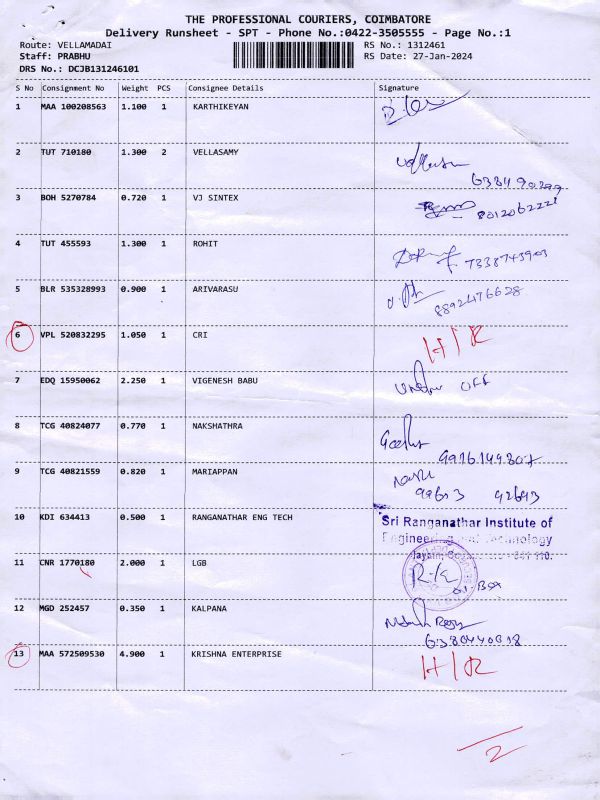 THE PROFESSIONAL COURIERS, COIMBATORE
Delivery Runsheet - SPT - Phone No.:0422-3505555 - Page No.:1
Route: VELLAMADAI RS No.: 1312461
Staff: PRABHU RS Date: 27-Jan-2024
DRS No.: DCJB131246101
S No Consignment No Weight PCS Consignee Details Signature
1 MAA 100208563 1.100 1 KARTHIKEYAN
2 TUT 710180 1.300 2 VELLASAMY
3 BOH 5270784 0.720 1 VJ SINTEX
4 TUT 455593 1.300 1 ROHIT
7338743903
5 BLR 535328993 0.900 1 ARIVARASU
8892476628
6 VPL 520832295 1.050 1 CRI H/R
7 EDQ 15950062 2.250 1 VIGENESH BABU
8 TCG 40824077 0.770 1 NAKSHATHRA
9 TCG 40821559 0.820 1 MARIAPPAN
99603 92693
10 KDI 634413 0.500 1 RANGANATHAR ENG TECH Sri Ranganathar Institute of
Engineering and Technology
11 CNR 1770180 2.000 1 LGB
12 MGD 252457 0.350 1 KALPANA
13 MAA 572509530 4.900 1 KRISHNA ENTERPRISE H/R
2